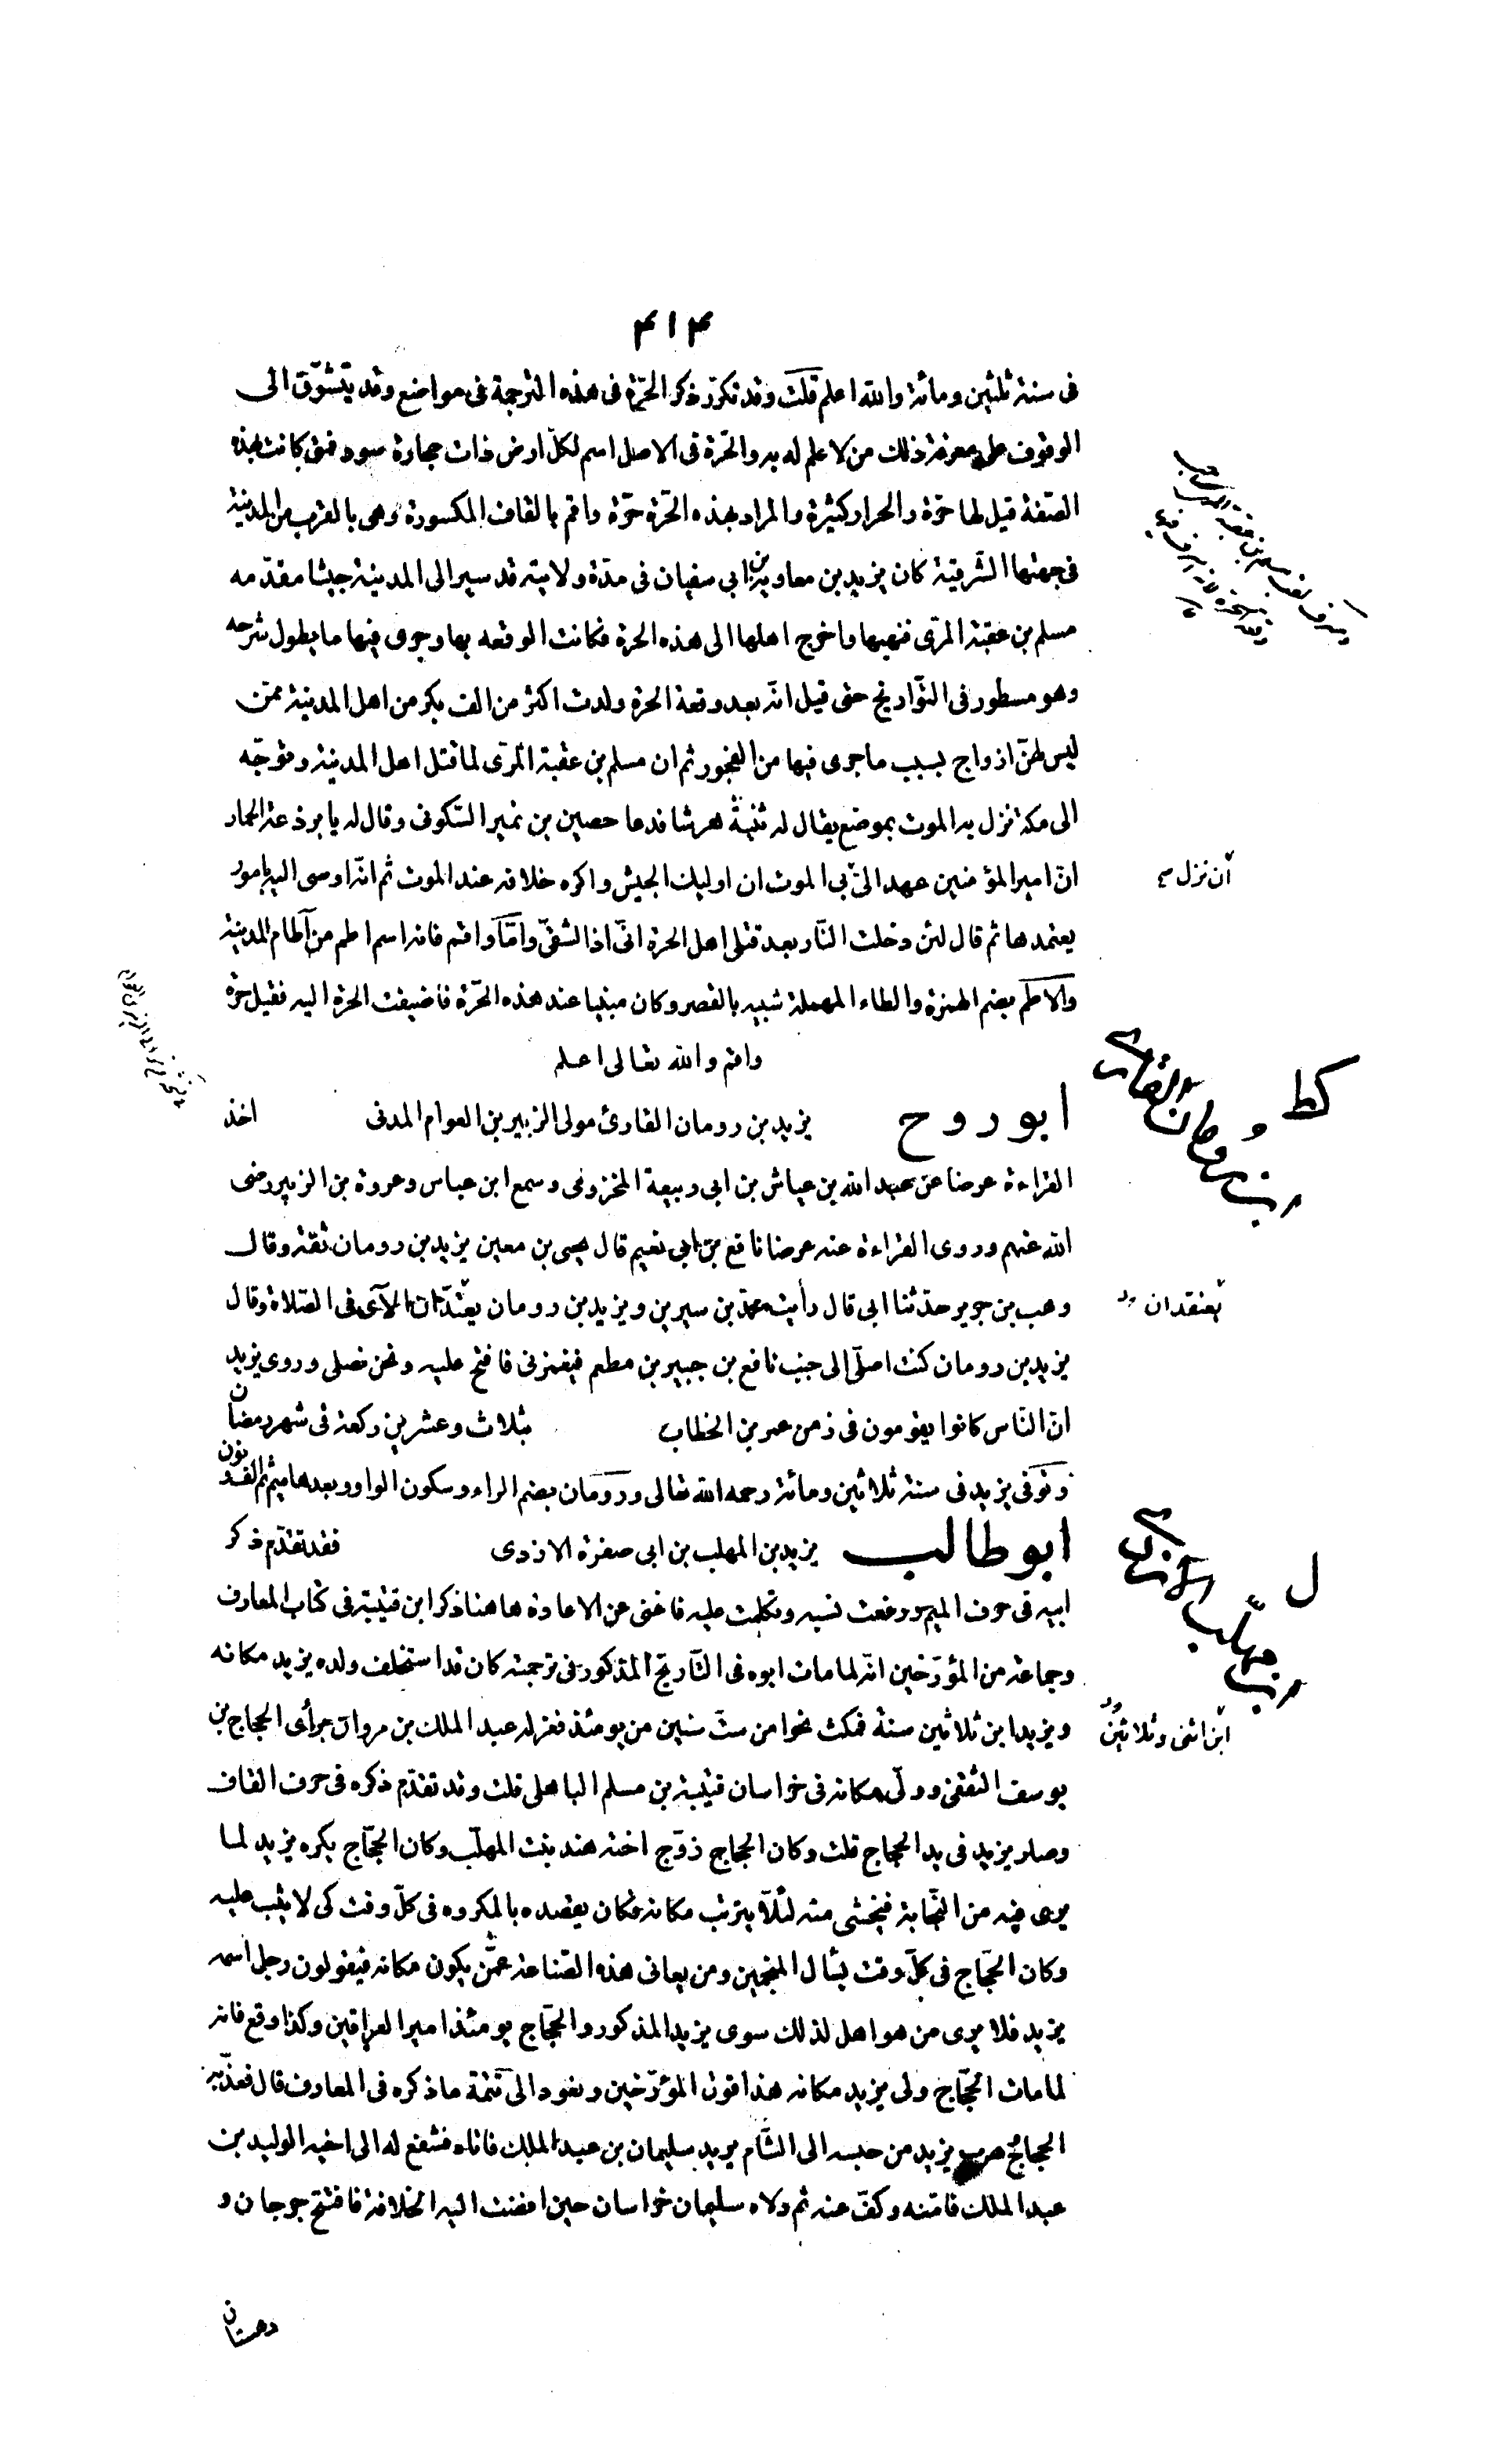 ۴۱۴
فى سنة ثلثين ومائة والله اعلم قلت وقد تكرّر ذكر الحرّة فى هذه الترجمة فى مواضع وقد يتشوّق الى
الوقوف على معرفة ذلك من لا علم له به والحرّة فى الاصل اسم لكلّ ارض ذات حجارة سود فمتى كانت بهذه
الصّفة قيل لها حرّة والحرار كثيرة والمراد بهذه الحرّة حرّة واقم بالقاف المكسورة وهى بالقرب من المدينة
فى جهتها الشّرقيّة كان يزيد بن معاوية بن ابى سفيان فى مدّة ولايته قد سير الى المدينة جيشا مقدّمه
مسلم بن عقبة المرّى فنهبها واخرج اهلها الى هذه الحرة فكانت الوقعه بها وجرى فيها ما يطول شرحه
وهو مسطور فى التّواريخ حتى قيل انّه بعد وقعة الحرة ولدت اكثر من الف بكر من اهل المدينة ممّن
ليس لهنّ ازواج بسبب ما جرى فيها من الفجور ثم ان مسلم بن عقبة المرّى لما قتل اهل المدينة وتوجّه
الى مكة نزل به الموت بموضع يقال له ثنيّة هرشا فدعا حصين بن نمير السّكونى وقال له يا برذعة الحمار
انّ امير المؤمنين عهد الىّ بى الموت ان اوليك الجيش واكره خلافه عند الموت ثم انّه اوصى اليه بامور
آن نزل
يعتمدها ثم قال لئن دخلت النّار بعد قتلى اهل الحرة انّى اذا لشقىّ وامّا واقم فانه اسم اطم من آطام المدينة
والاطم بضم الهمزة والطاء المهملة شبيه بالقصر وكان مبنيا عند هذه الحرّة فاضيفت الحرة اليه فقيل حرّة
واقم والله تعالى اعلم
كط و
ابن رومان القارى
ابو روح يزيد بن رومان القارئ مولى الزبير بن العوام المدنى اخذ
القراءة عرضا عن عبد الله بن عياش بن ابى ربيعة المخزومى وسمع ابن عباس وعروة بن الزبير رضى
الله عنهم وروى القراءة عنه عرضا نافع بن ابى نعيم قال يحيى بن معين يزيد بن رومان ثقة وقال
وهب بن جرير حدّثنا ابى قال رأيت محمّد بن سيرين ويزيد بن رومان يعدّان الآى فى الصّلاة وقال
يعنقدان
يزيد بن رومان كنت اصلّى الى جنب نافع بن جبير بن مطعم فيغمزنى فافتح عليه ونحن نصلى وروى يزيد
انّ النّاس كانوا يقومون فى زمن عمر بن الخطاب بثلاث وعشرين ركعة فى شهر رمضان
وتوفى يزيد فى سنة ثلاثين ومائة رحمه الله تعالى ورومان بضم الراء وسكون الواو وبعدها ميم ثم الف ونون
ل
ابن مهلّب الازدى
ابو طالب يزيد بن المهلب بن ابى صفرة الازدى فقد تقدّم ذكر
ابيه فى حرف الميم ورفعت نسبه وتكلمت عليه فاغنى عن الاعادة هاهنا ذكر ابن قتيبة فى كتاب المعارف
وجماعة من المؤرّخين انّه لما مات ابوه فى التّاريخ المذكور فى ترجمته كان قد استخلف ولده يزيد مكانه
ويزيد ابن ثلاثين سنة فمكث نحوا من ستّ سنين من يومئذ فعزله عبد الملك بن مروان برأى الحجاج بن
ابن اثنى وثلاثين
يوسف الثقفى وولّى مكانه فى خراسان قتيبة بن مسلم الباهلى قلت وقد تقدّم ذكره فى حرف القاف
وصار يزيد فى يد الحجاج قلت وكان الحجاج زوّج اخته هند بنت المهلّب وكان الحجّاج يكره يزيد لما
يرى فيه من النّجابة فيخشى منه لئلّا يترتب مكانه فكان يقصده بالمكروه فى كلّ وقت كى لا يثب عليه
وكان الحجّاج فى كلّ وقت يسال المنجمين ومن يعانى هذه الصّناعة عمّن يكون مكانه فيقولون رجل اسمه
يزيد فلا يرى من هو اهل لذلك سوى يزيد المذكور والحجّاج يومئذ امير العراقين وكذا وقع فانه
لما مات الحجّاج ولى يزيد مكانه هذا قول المؤرّخين ونعود الى تتمّة ما ذكره فى المعارف قال فعذّبه
الحجاج فهرب يزيد من حبسه الى الشّام يريد سليمان بن عبد الملك فاتاه فشفع له الى اخيه الوليد بن
عبد الملك فامّنه وكفّ عنه ثم ولاه سليمان خراسان حين افضت اليه الخلافة فافتتح جرجان و
دهستان